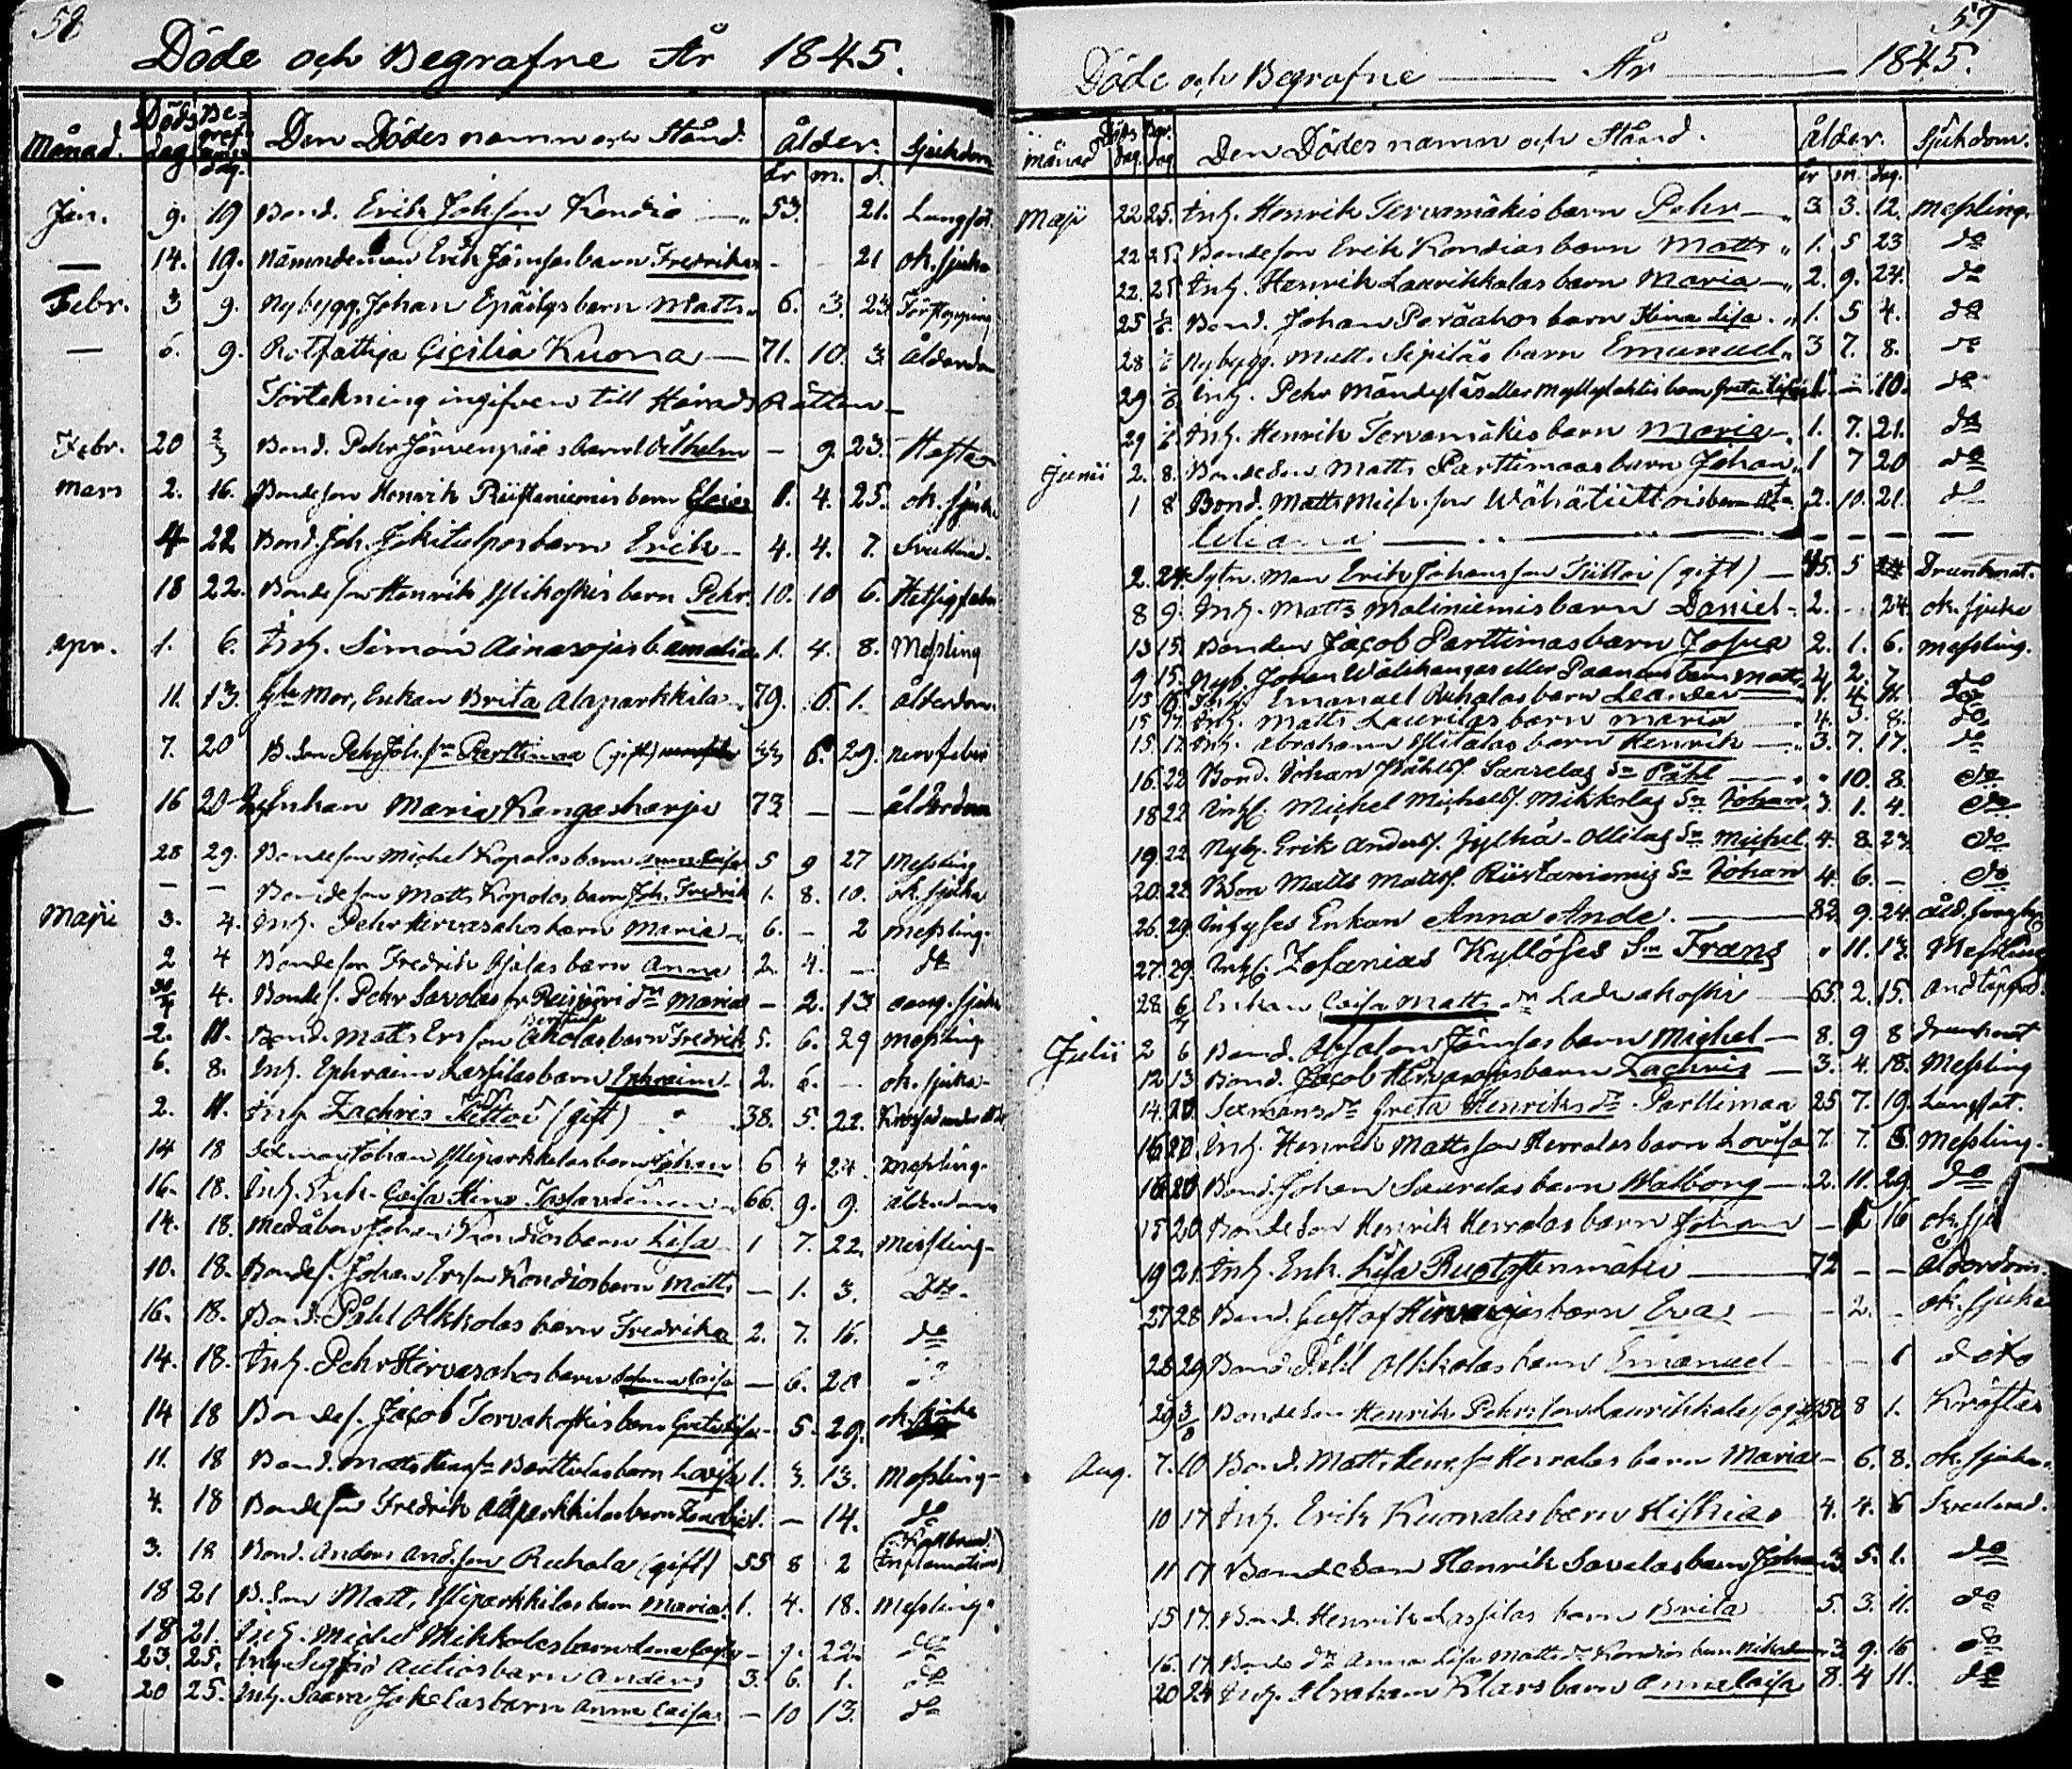 58
Döde och Begrafne År 1845.
Månad. Döds dag Be- graf- nings dag. Den Dödes namn och Stånd. Ålder. Sjukdom
år m. d.
Jan. 9. 19 Bond. Erik Johsson Kondio 53. 21. Lungsot.
— 14. 19. Nämndeman Erik Jämsas barn Fredrika - 21 ok. sjuka
Febr. 3 9. Nybygg. Johan barn Matts 6. 3. 23. Förstoppning
— 6. 9. Rotfattiga Cicilia Kuona — 71. 10. 3. Ålderdom
Förtekning ingifven till Härads Rätten
Febr. 20 2/3 Bond. Pehr Järvenpää s barn Wilhelm — 9. 23. Hosta
Mars 2. 16. Bondeson Henrik Riistaniemis barn 1. 4. 25. ok. sjuka
4 22 Bond. Joh. Jokitulpos barn Erik 4. 4. 7. Svullnad.
18 22. Bondeson Henrik Ylikoskis barn Pehr. 10. 10 6. Hetsig feber
Apr. 1. 6. Inh. Simon Ainasojas b. Amalia 1. 4. 8. Messling
11. 13. Gla Mor, Enkan Brita Alaparkkila 79. 6. 1. Ålderdom.
7. 20 B.son Pehr Joh.son Parttimaa (gift) 33 6. 29. nervfeber
16 20 Enkan Maria Kangasharju 73 — — ålderdom
28 29. Bondeson Michel Kopolas barn 5 9 27 Messling
— — Bondeson Matts Kopolas barn Joh. Fredrik 1. 8. 10. ok. sjuka
Maji 3. 4. Inh. Pehr Hirvasahos barn Maria 6. - 2 messling.
2 4 Bondeson Fredrik Ojalas barn Anna 2. 4. — do
30/4 4. Bondes. Pehr Savolas fr. Reisjärvi dr Maria — 2. 13 ang. sjuka
2. 11. Bond. Matts Ersson Aholas barn Fredrik 5. 6. 29 messling
6. 8. Inh. Ephraim Lassilas barn Ephraim 2. 6. — ok. sjuka
2. 11. Inh. Zachris Tiittoi (gift) 38. 5. 22.
14 18 Sexman Johan Yliparkkilas barn Johan 6 4 24. messling.
16. 18. Inh. Enk. Caisa Stina 66. 9. 9. ålderdom
14. 18. Medåbon Johan Kondios barn Lisa 1 7. 22. Messling
10. 18. Bondes. Johan Ersson Kondios barn Matts — 1. 3. Do.
16. 18. Bond. Påhl Olkkolas barn Fredrika 2. 7. 16. do
14. 18. Inh. Pehr Hirvasahos barn — 6. 20 "
14 18 Bondes. Jacob Torvakoskis barn Greta Lisa 5. 29. ok. sjuka
11. 18 Bond. Matts Hinr.sn Barttilas barn Lovisa 1. 3. 13. Messling
4. 18 Bondeson Fredrik Alaparkkilas barn 1. — 14. do
3. 18 Bond. Anders Andsson Ruhala (gift) 55 8 2 (Inflamation)
18 21 B.son Matts Yliparkkilas barn Maria 1. 4. 18. Messling
18 21. Inh. Michel Mikkolas barn Lena Caisa — 9. 22. do
23. 25. Inh. Sigfrid Autios barn Anders 3. 6. 1. do
20 25. Inh. Saara Jokelas barn Anna Caisa — 10 13. do
59
Döde och Begrafne — År — 1845.
Månad Döds dag Bgr. dag Den Dödes namn och Stånd. Ålder. Sjukdom.
år m. dag.
Maji 22 25. Inh. Henrik Tervamäkis barn Pehr 3. 3. 12. messling.
22 25. Bondeson Erik Kondias barn Matts 1. 5 23 do
22. 25 Inh. Henrik Laurikkalas barn Maria 2. 9. 24. do
25 1/6 Bond. Johan Peräahos barn Stina Lisa 1. 5 4. do
28 1/6 Nybygg. Matts Sipiläs barn Emanuel 3 7. 8. do
29 1/6 Inh. Pehr barn Greta Lisa 1. — 10. do
29 1/6 Inh. Henrik Tervamäkis barn Maria 1. 7. 21. do
Junii 2. 8. Bondeson Matts Parttimaas barn Johan 1 7 20 do
1 8 Bond. Matts Mich.son Wähätiittois barn 2. 10. 21. do
— — — —
2. 24. Sytn. man Erik Johansson Tiittoi (gift) 45. 5 Drunknat.
8 9. Inh. Matts Maliniemis barn Daniel 2. - 24. ok. sjuka
13 15. Bonden Jacob Parttimas barn Josua 2. 1. 6. messling.
9 15. Nyb. Johan Wälikangas eller Paananens barn Matts 4 2. 7. do
15 16 Inh. Emanuel Ruhalas barn Leander 1. 4. 11. do
15 17. Inh. Matts Laurilas barn Maria 4. 3. 8. do
15. 17. Inh. Abraham Ylitalos barn Henrik 3. 7. 17. do
16. 22 Bond. Johan Påhlss. Saarelas Sn Påhl " 10. 8. do
18 22 Inh. Michel Michelss. Mikkolas Sn Johan 3. 1. 4. do
19. 22 Nyb. Erik Anderss. Jylhä-Ollilas Sn Michel 4. 8. 23. do
20. 22 B.Son Matts Mattss. Riistaniemis Sn Johan 4. 6. — do
26. 29. Inhyses Enkan Anna Ande. 82. 9. 24.
27. 29. Inh. Zefanias Kyllöses Sn Frans " 11. 13. Messling
28. 6/7 Enkan Caisa Matts dr Ladvakoski 65. 2. 15. Andtäppa.
Julii 2 6 Bond. Absalon Jämsas barn Michel 8. 9 8 drunknat
12 13 Bond. Jacob Hirvasojas barn Zachris 3. 4. 18. Messling
14. 20 Sexmans dr Greta Henriks dr Parttimaa 25 7. 19. Lungsot.
16 20. Inh. Henrik Mattsson Herralas barn Lovisa 7. 7. 5. Messling
16 20 Bond. Johan Saarelas barn Walborg 2. 11. 29. do
15 20 Bondeson Henrik Herralas barn Johan — 16 ok. sju
19 21. Inh. Enk. Lisa 72 — — ålderdom
27 28 Bond. Gustaf Hirvasojas barn Eva — 2. — ok. sjuka
28 29 Bond. Påhl Olkkolas barn Emanuel — — 1 dito
29 3/8 Bondeson Henrik Pehrsson Laurikkala 8 1. Kräftan
Aug. 7. 10 Bond. Matts Henr.sn Herralas barn Maria — 6. 8. ok. sjuka
10 17 Inh. Erik Kuonalas barn Hiskias 4. 4. 6 Svullnad.
11 17 Bondeson Henrik Savelas barn Johan 3 5. 1. do
15 17. Bond. Henrik Lassilas barn Brita 5. 3. 11. do
16. 17. Bonde dr Anna Lisa Matts dr Kondios barn 3 9. 16 do
20 24 Inh. Abraham Klavs barn Anna Caisa 8. 4 11. do